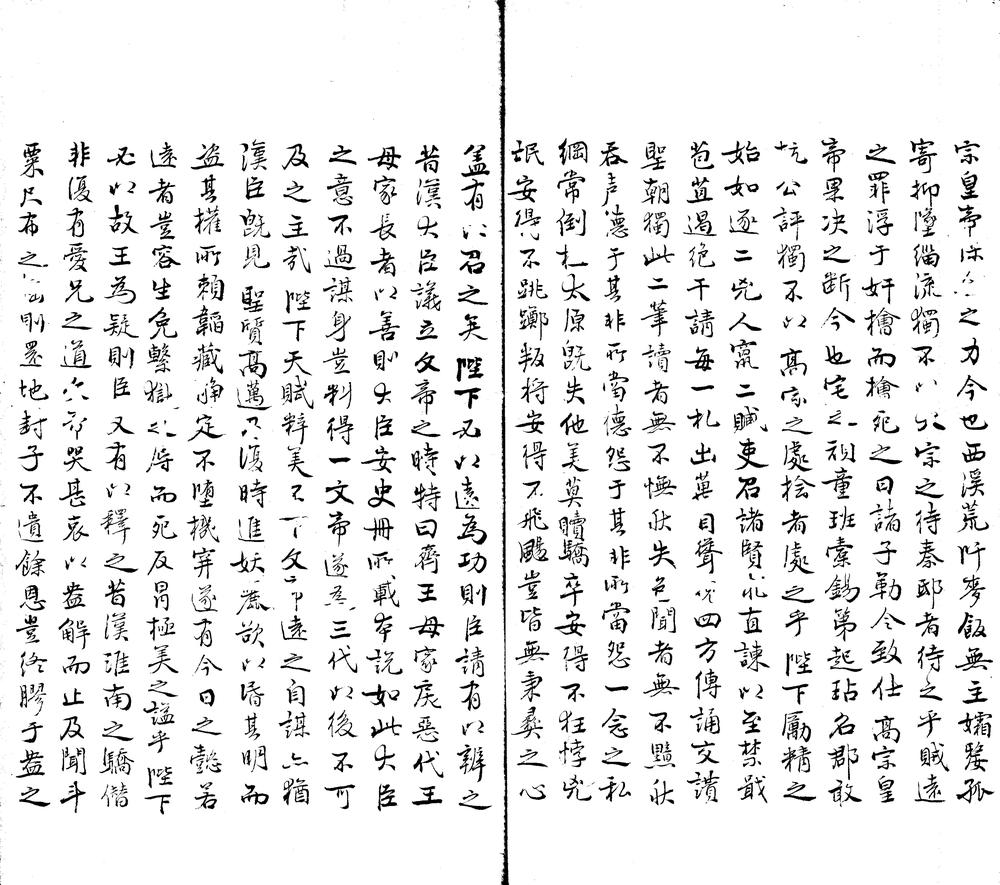 宗皇帝之力今也西溪荒阡麥飯無主孀嫠孤
寄抑墮緇流獨不以宗之待秦邸者待之乎賊遠
之罪浮于奸檜而檜死之日諸子勒令致仕高宗皇
帝果决之斷今也宅之祠童班橐錫第起玷名郡敢
抗公評獨不以高宗之處檜者處之乎陛下勵精之
始如逐二兇人竄二贓吏召諸賢直諫以至禁戢
苞苴遏絶干請每一札出萬目聳四方傳誦交讚
聖朝獨此二筆讀者無不憮然失色聞者無不黯然
吞声德于其非所當德怨于其非所當怨一念之私
綱常倒札太原既失他美莫贖驕卒安得不狂悖兇
氓安得不跳躑叛将安得不飛颺豈皆無秉彝之心
盖有以召之矣陛下必以遠為功則臣請有以辨之
昔漢大臣議立文帝之時特曰齊王母家戾惡代王
母家長者以善則大臣安史冊所載本說如此大臣
之意不過謀身豈料得一文帝遂為三代以後不可
及之主哉陛下天賦粹美不下文帝遠之自謀亦猶
漢臣既見聖質高邁乃復時進妖麗欲以昏其明而
盗其權所賴韜藏静定不堕機穽遂有今日之懿若
遠者豈容生免繫獄得而死反冒極美之謚乎陛下
必以故王為疑則臣又有以釋之昔漢淮南之驕僭
非復有愛兄之道文帝哭甚哀以盎解而止及聞斗
粟尺布之謡則置地封子不遺餘恩豈終膠于盎之